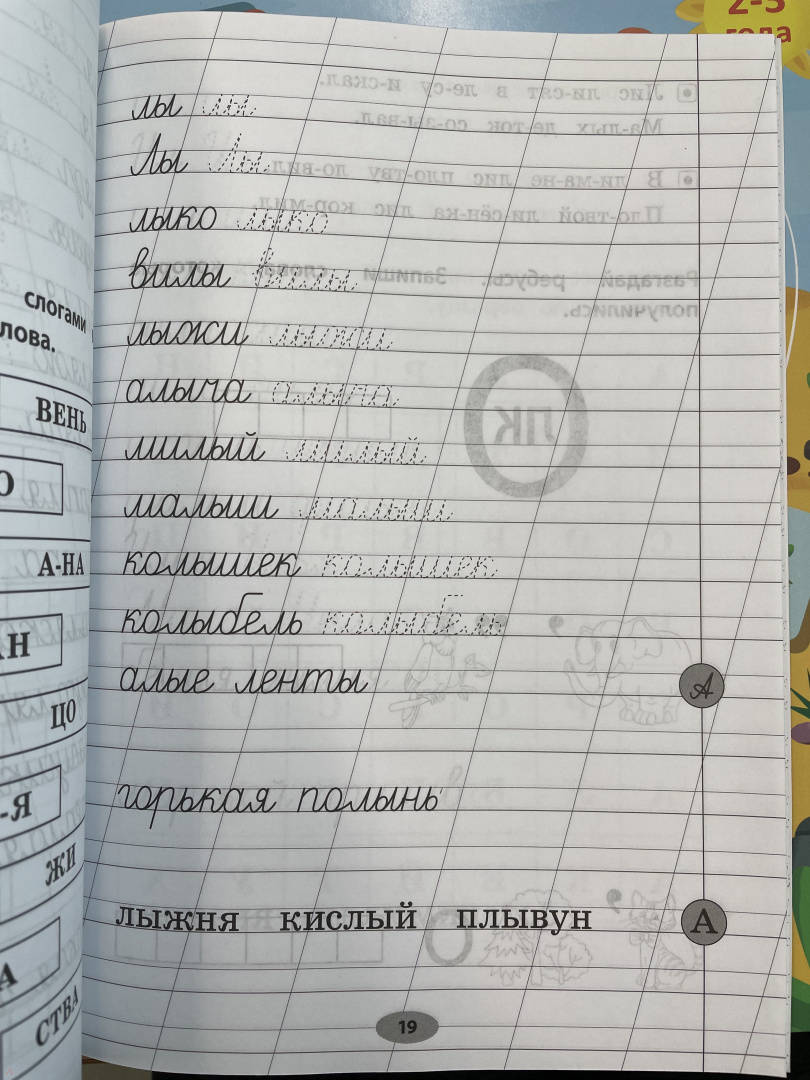 2-3
года
слогами
лова.
ВЕНЬ
О
А-НА
АН
ЦО
-Я
ЖИ
А
СТВА
лы лы
Лы Лы
лыко лыко
вилы вилы
лыжи лыжи
алыча алыча
милый милый
малыш малыш
колышек колышек
колыбель колыбель
алые ленты
А
горькая полынь
лыжня кислый плывун
А
19